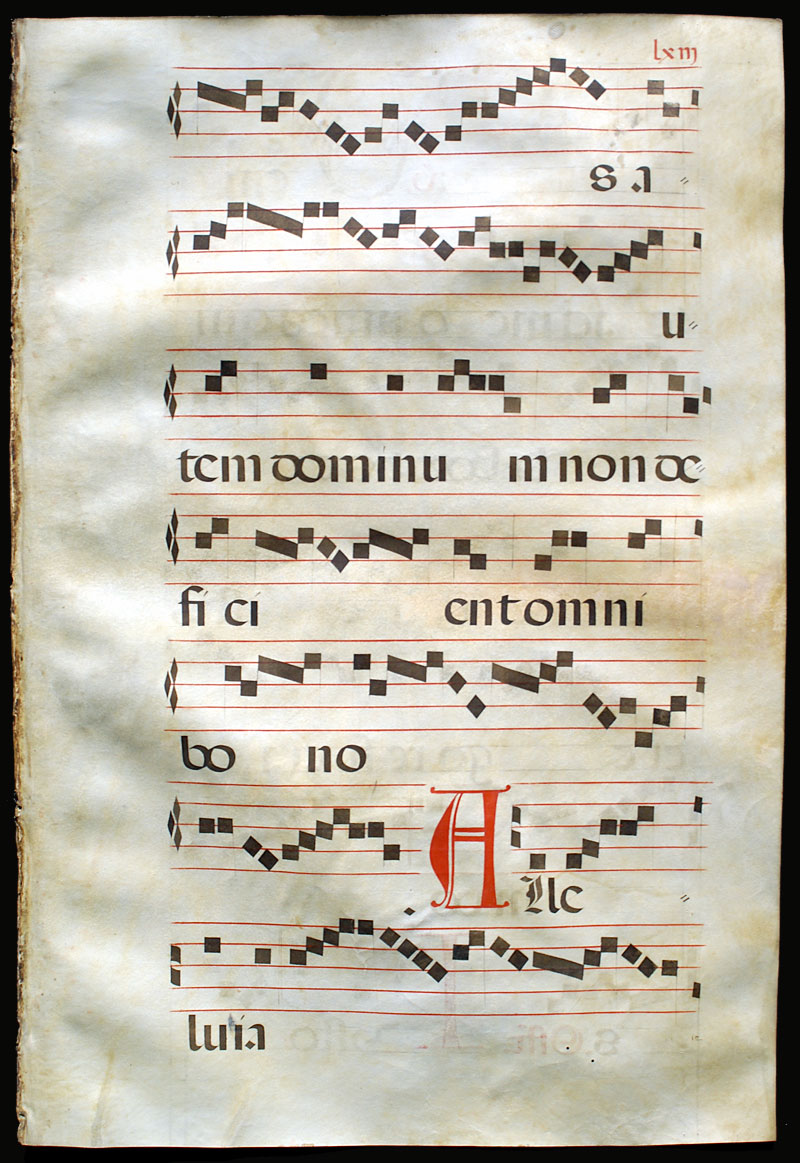 lxiij
sa
u
tem dominu m non de
fi ci ent omni
bo no
Alle
luia